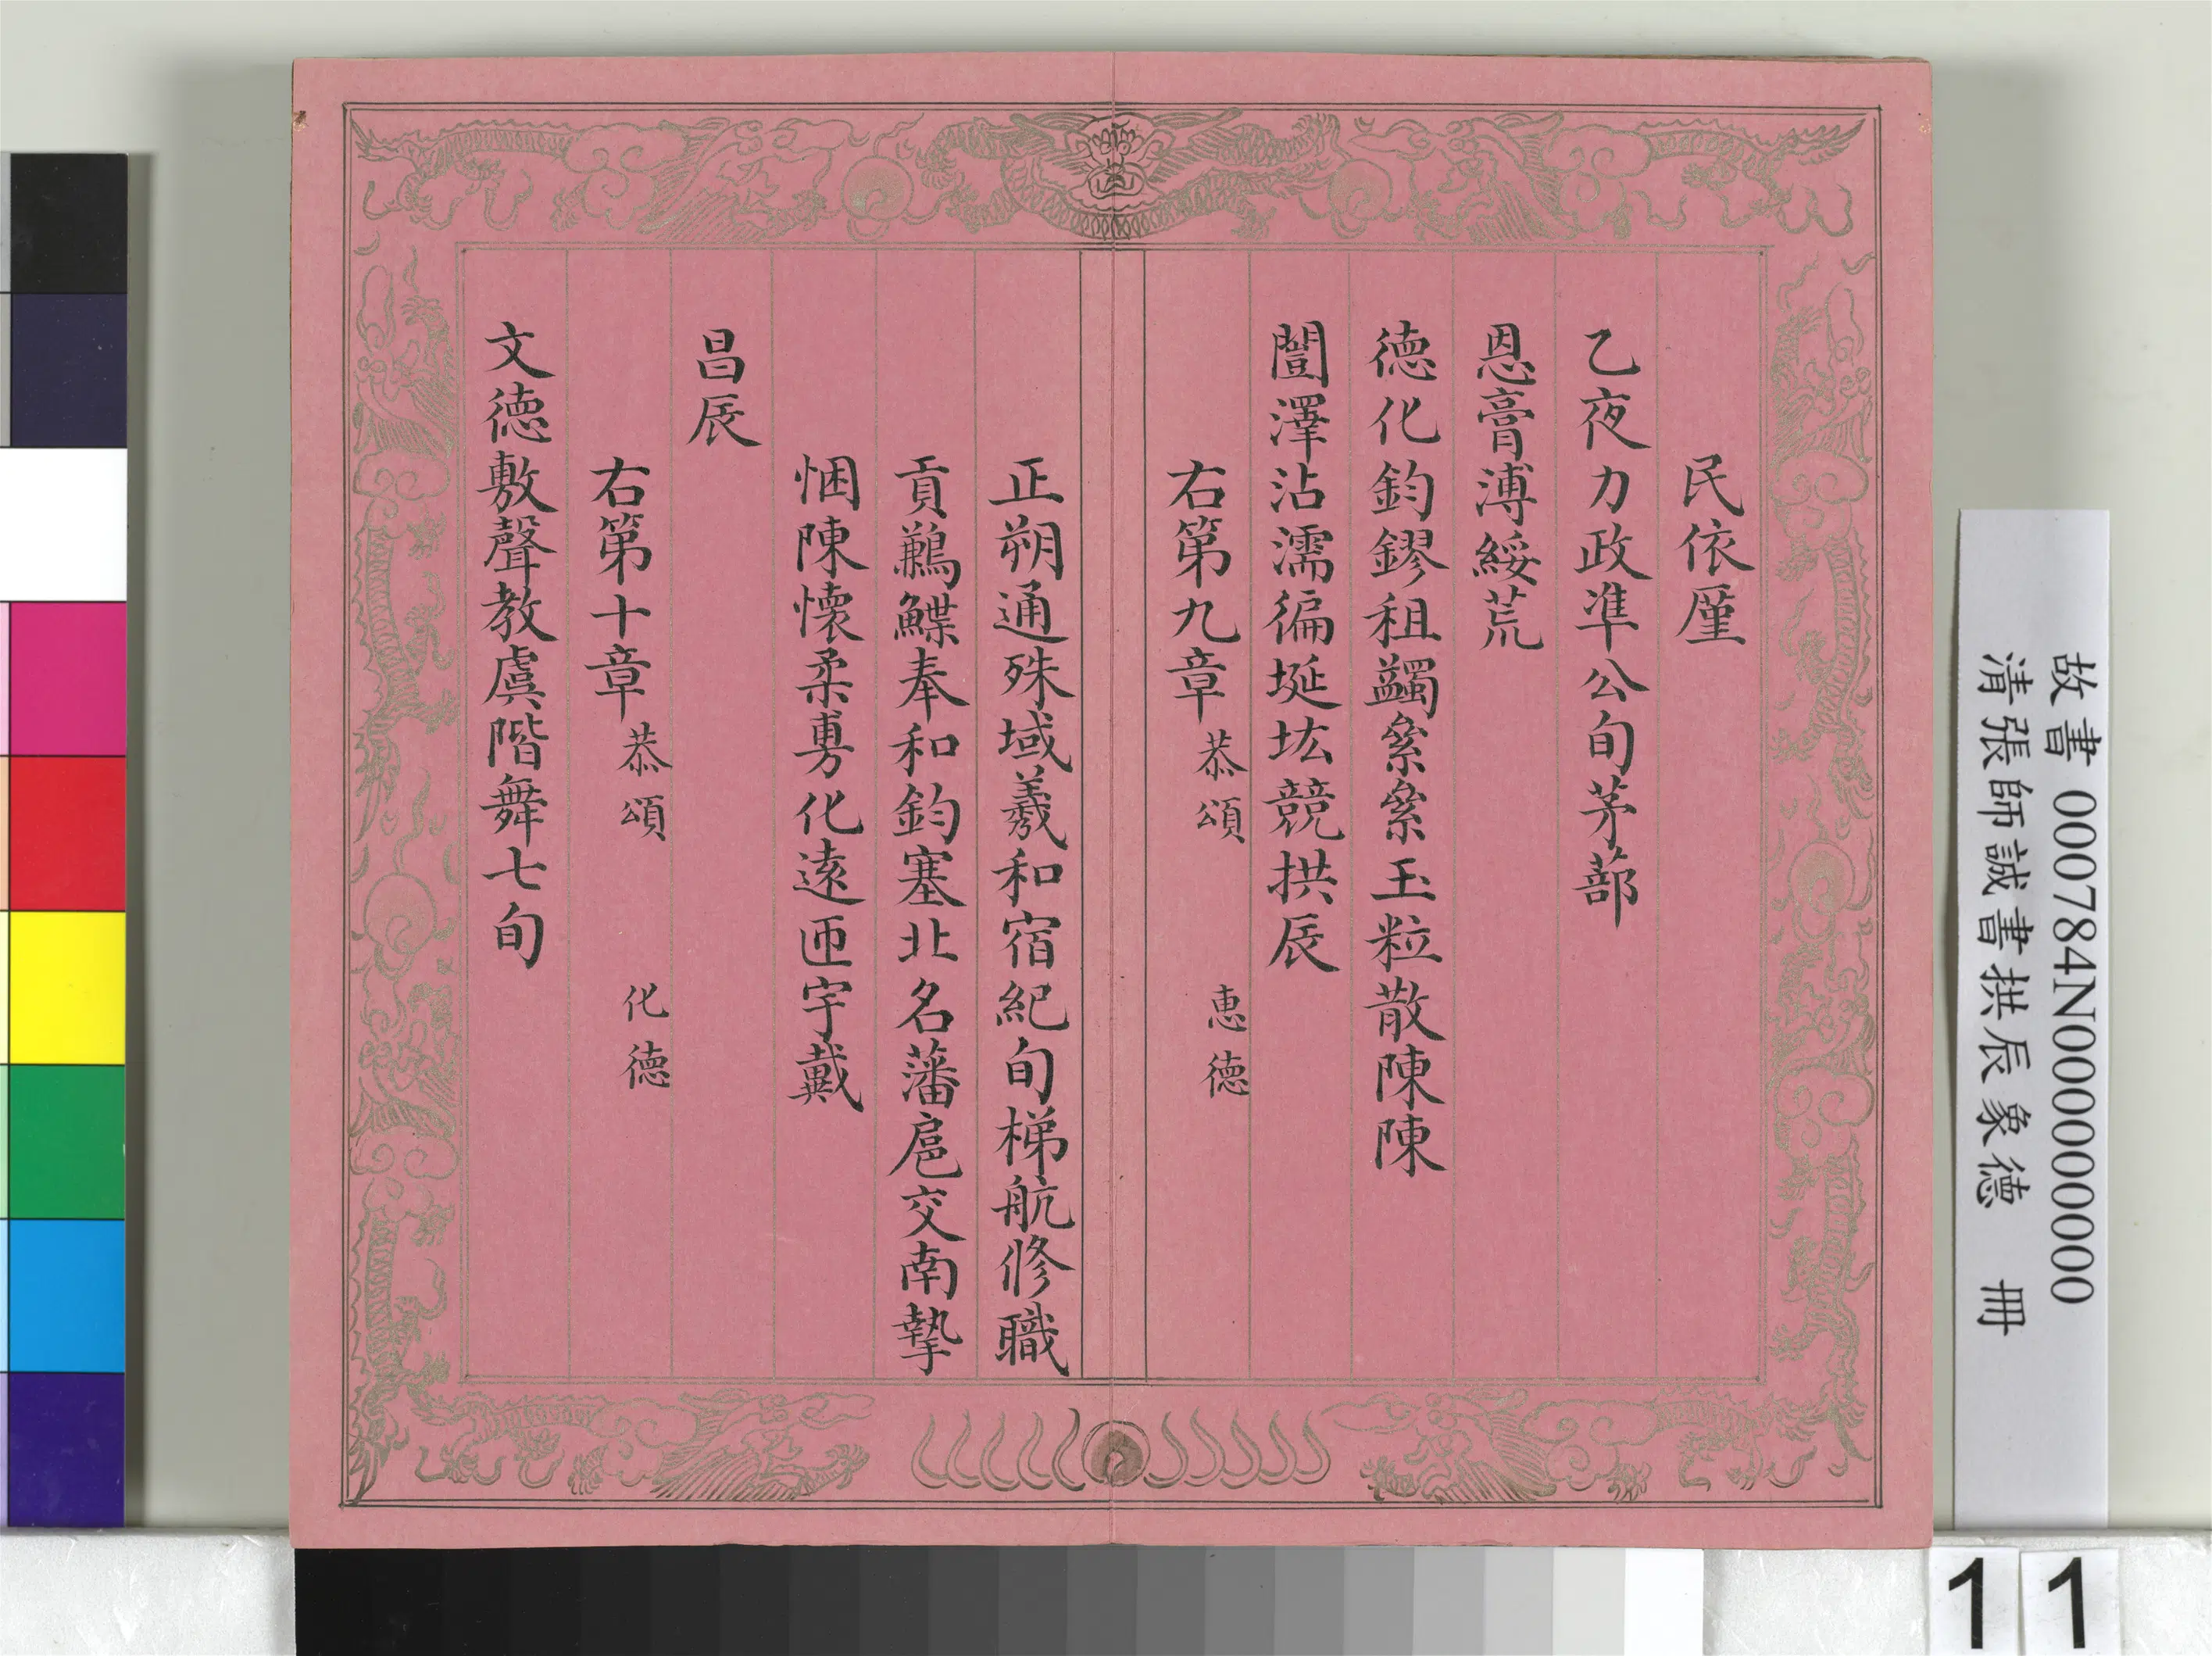 民依廑
乙夜力政準公旬茅蔀
恩膏溥綏荒
德化鈞鏐租蠲絫絫玉粒散陳陳
闓澤沾濡徧埏垓競拱辰
右第九章 恭頌 惠德
正朔通殊域羲和宿紀旬梯航修職
貢鶼鰈奉和鈞塞北名藩扈交南摯
悃陳懷柔旉化遠匝宇戴
昌辰
右第十章 恭頌 化德
文德敷聲教虞階舞七旬
故書 000784N000000000
清張師誠書拱辰象德 冊
11